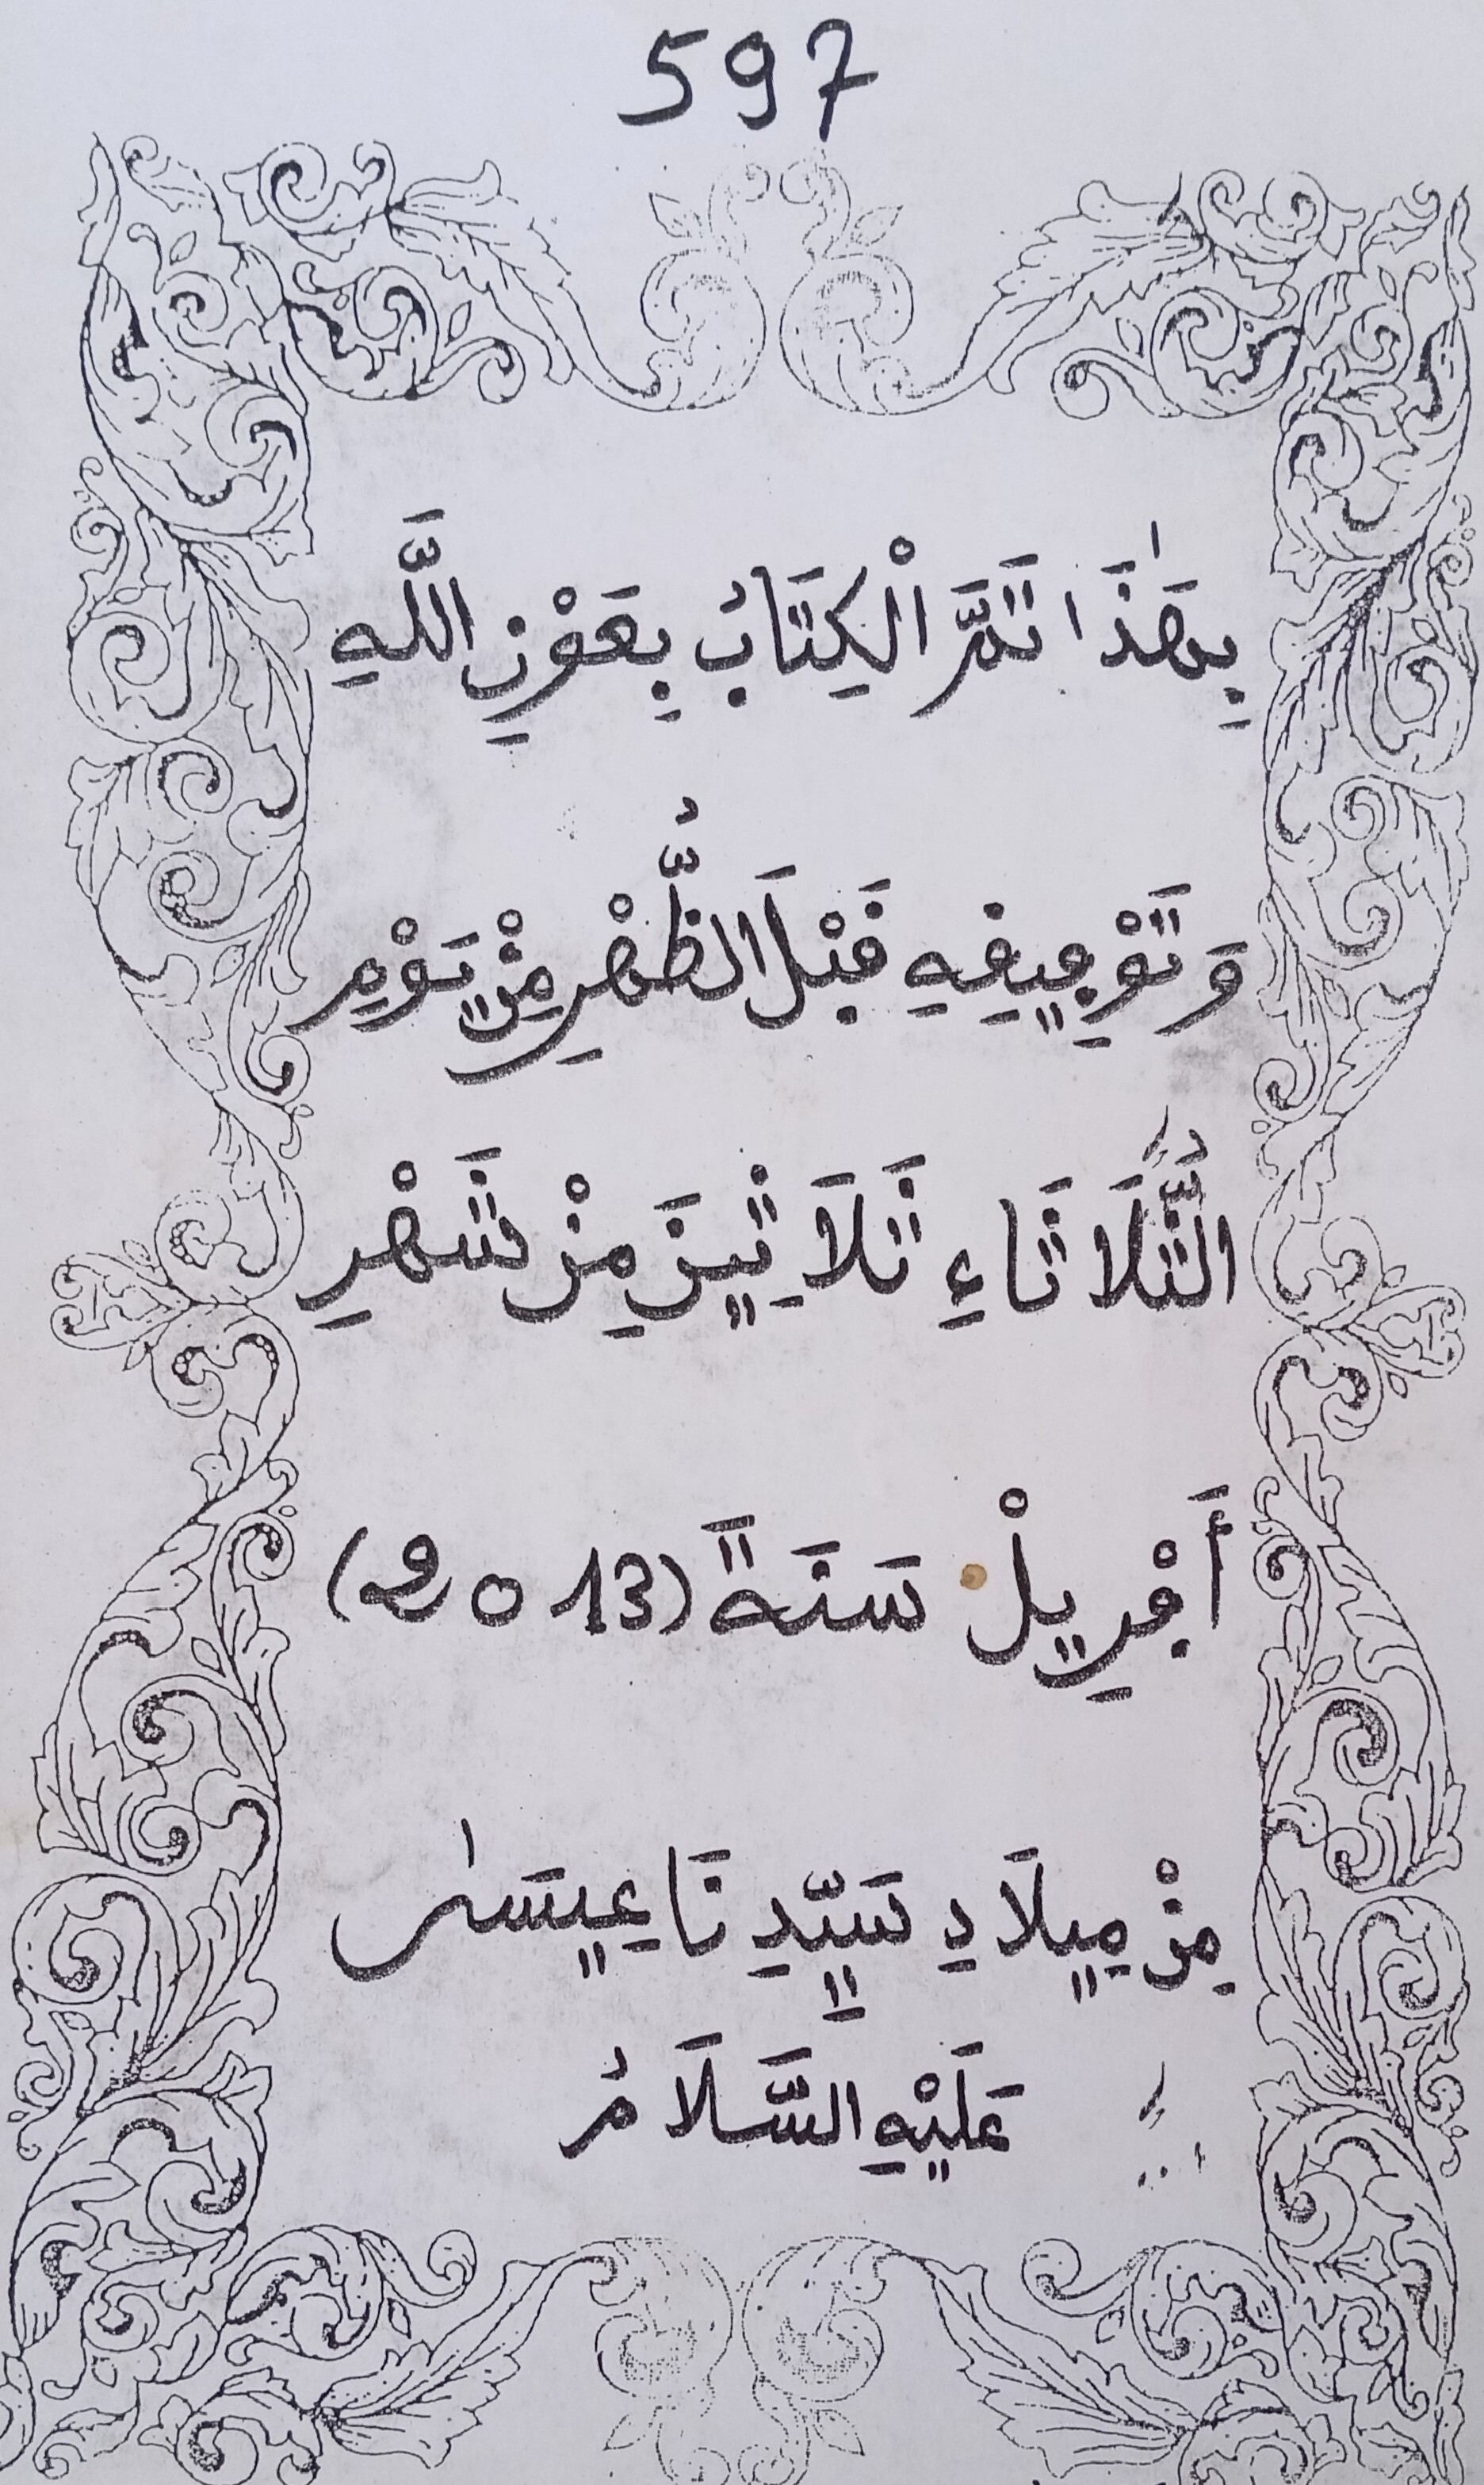 597
بِهَٰذَا تَمَّ الْكِتَابُ بِعَوْنِ اللَّهِ
وَتَوْفِيقِهِ قَبْلَ الظُّهْرِ مِنْ يَوْمِ
الثُّلَاثَاءِ ثَلَاثِينَ مِنْ شَهْرِ
أَفْرِيلْ سَنَةً (2013)
مِنْ مِيلَادِ سَيِّدِنَا عِيسَىٰ
عَلَيْهِ السَّلَامُ